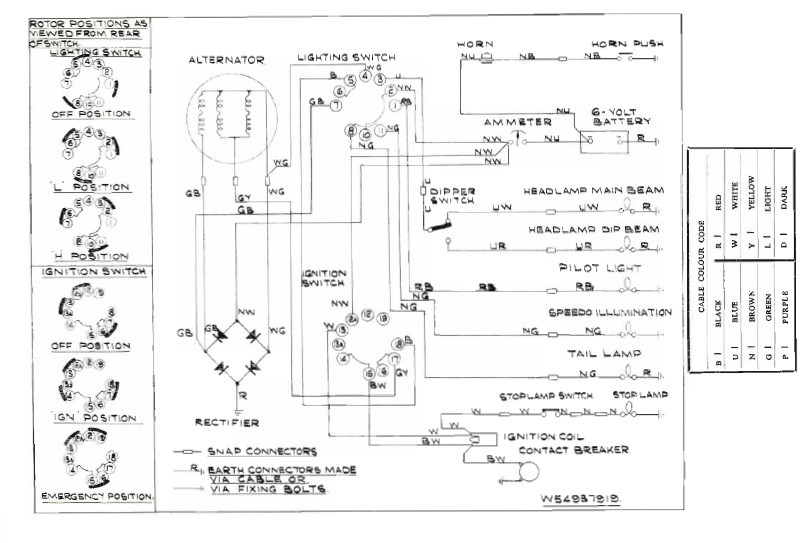 ROTOR POSITIONS AS
VIEWED FROM REAR
OF SWITCH.
LIGHTING SWITCH
OFF POSITION
"L" POSITION
"H" POSITION
IGNITION SWITCH
OFF POSITION
"IGN" POSITION
EMERGENCY POSITION.
ALTERNATOR
WG
GB
GY
GB
WG
NW
GB
GB
WG
R
RECTIFIER
LIGHTING SWITCH
WG
B
U
NW
GB
RB
5
4
3
6
2
7
1
8
10
11
NG
NG
NW
NW
NW
IGNITION
SWITCH
NW
W
13
12
19
3A
18
B
4
17
15
6
GY
BW
HORN
HORN PUSH
NU
NB
NB
NU
AMMETER
6-VOLT
BATTERY
NU
R
U
DIPPER
SWITCH
U
HEADLAMP MAIN BEAM
UW
UW
R
HEADLAMP DIP BEAM
UR
UR
R
PILOT LIGHT
RB
RB
RB
NG
SPEEDO ILLUMINATION
NG
NG
TAIL LAMP
NG
R
STOPLAMP SWITCH
STOP LAMP
W
W
W
N
N
N
W
W
BW
IGNITION COIL
CONTACT BREAKER.
BW
SNAP CONNECTORS
R
EARTH CONNECTORS MADE
VIA CABLE OR
VIA FIXING BOLTS.
W54937919.
CABLE COLOUR CODE
B BLACK R RED
U BLUE W WHITE
N BROWN Y YELLOW
G GREEN L LIGHT
P PURPLE D DARK